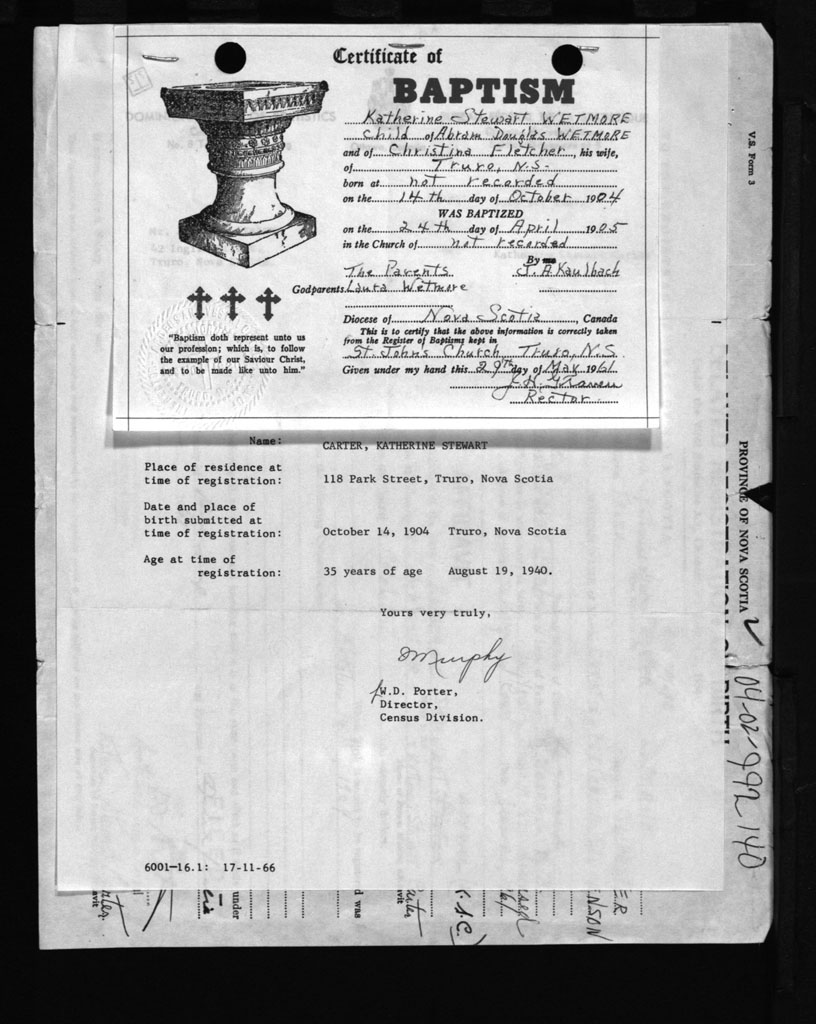 Certificate of
BAPTISM
Katherine Stewart WETMORE
Child of Abram Douglas WETMORE
and of Christina Fletcher, his wife,
of Truro, N.S.
born at not recorded
on the 14th day of October 1904
WAS BAPTIZED
on the 24th day of April 1905
in the Church of not recorded
By me
The Parents J. A. Kaulbach
Godparents Laura Wetmore
Diocese of Nova Scotia, Canada
This is to certify that the above information is correctly taken
from the Register of Baptisms kept in
St. Johns Church, Truro, N.S.
Given under my hand this 29th day of May 1961
Rector
"Baptism doth represent unto us
our profession; which is, to follow
the example of our Saviour Christ,
and to be made like unto him."
Name: CARTER, KATHERINE STEWART
Place of residence at
time of registration: 118 Park Street, Truro, Nova Scotia
Date and place of
birth submitted at
time of registration: October 14, 1904 Truro, Nova Scotia
Age at time of
registration: 35 years of age August 19, 1940.
Yours very truly,
Murphy
W.D. Porter,
Director,
Census Division.
6001-16.1: 17-11-66
V.S. Form 3
PROVINCE OF NOVA SCOTIA
04-02-992140
under
d was
(.S.C.)
ER
NSON